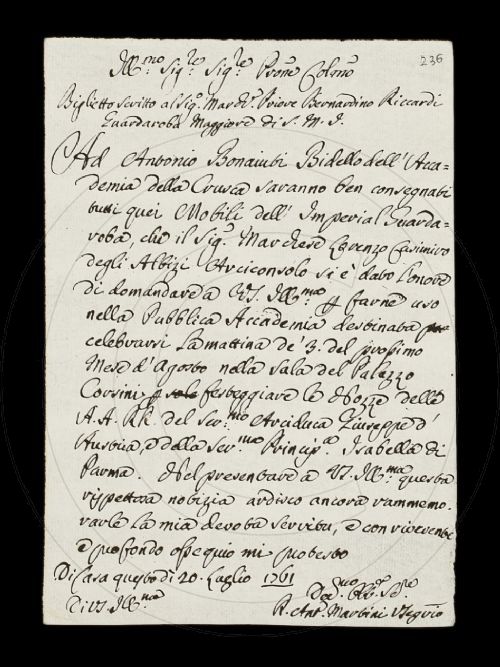 236
Ill:mo Sig:re Sig:re Prone Colmo
Biglietto scritto al Sig: March: Priore Bernardino Riccardi
Guardaroba Maggiore di S. M. I.
Ad Antonio Bonaiuti Bidello dell' Acca=
demia della Crusca saranno ben consegnati
tutti quei Mobili dell' Imperial Guarda=
roba, che il Sig: Marchese Lorenzo Casimiro
degli Albizi Arciconsolo si è dato l'onore
di domandare a VS. Ill:ma farne uso
nella Pubblica Accademia destinata
celebrarsi la mattina de' 3. del prossimo
Mese d'Agosto nella Sala del Palazzo
Corsini festeggiare le Nozze delle
A.A. RR. del Ser:mo Arciduca Giuseppe d'
Austria, e della Ser:ma Princip:a Isabella di
Parma. Nel presentare a VS. Ill:ma questa
rispettosa notizia ardisco ancora rammemo.
rarle la mia devota servitu, e con riverente
e profondo ossequio mi protesto
Di Casa questo dì 20. Luglio 1761
Di VS. Ill:ma
R. Ant. Martini